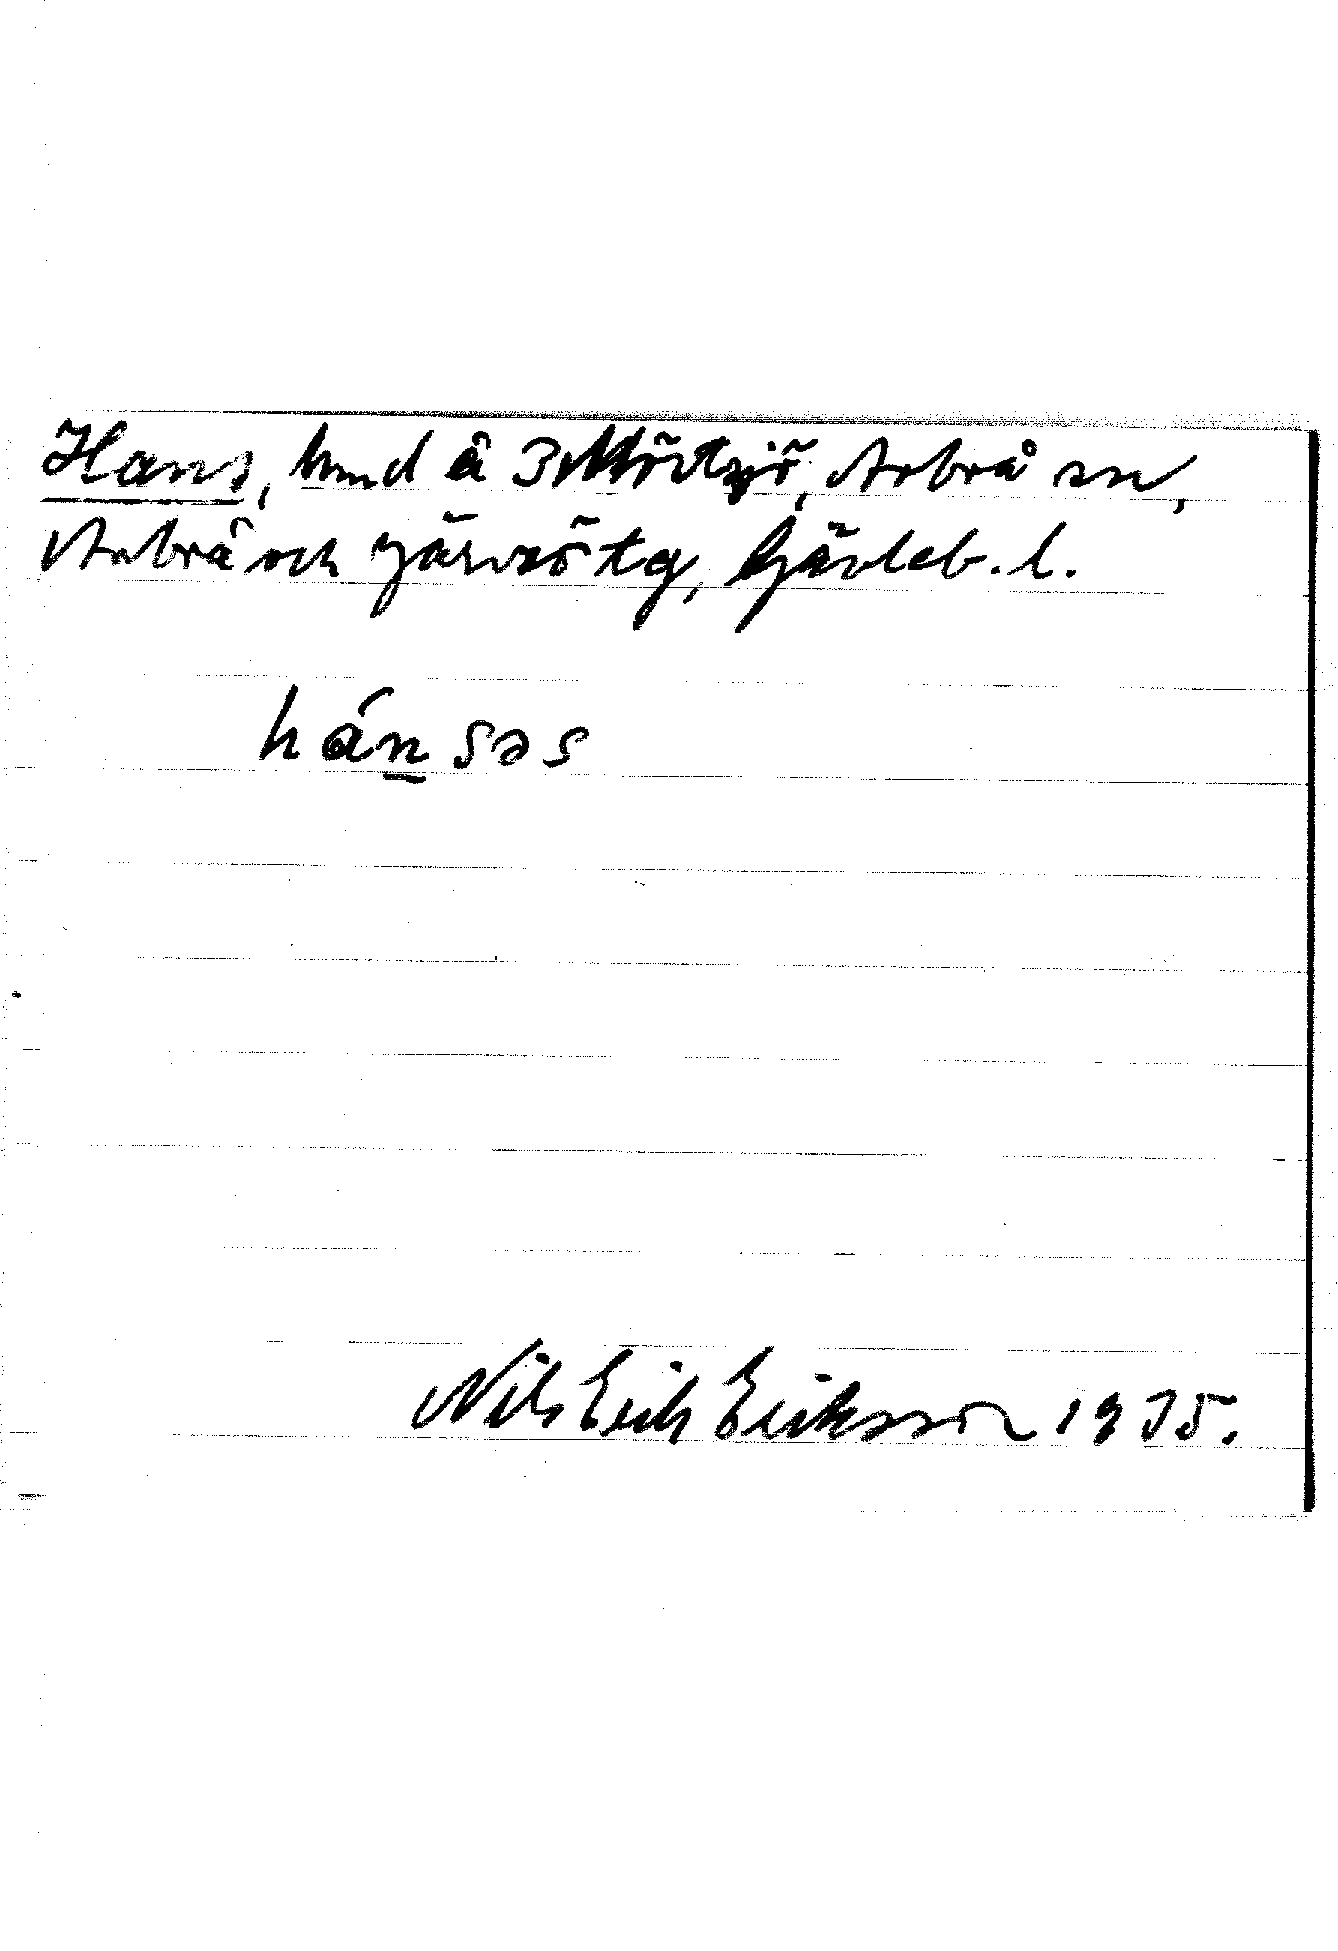 Hans, hmd å 3 Mörtsjö, Arbrå sn,
Arbrå och Järvsö tg, Gävleb. l.
hánsəs
Nils Erik Eriksson 1935.